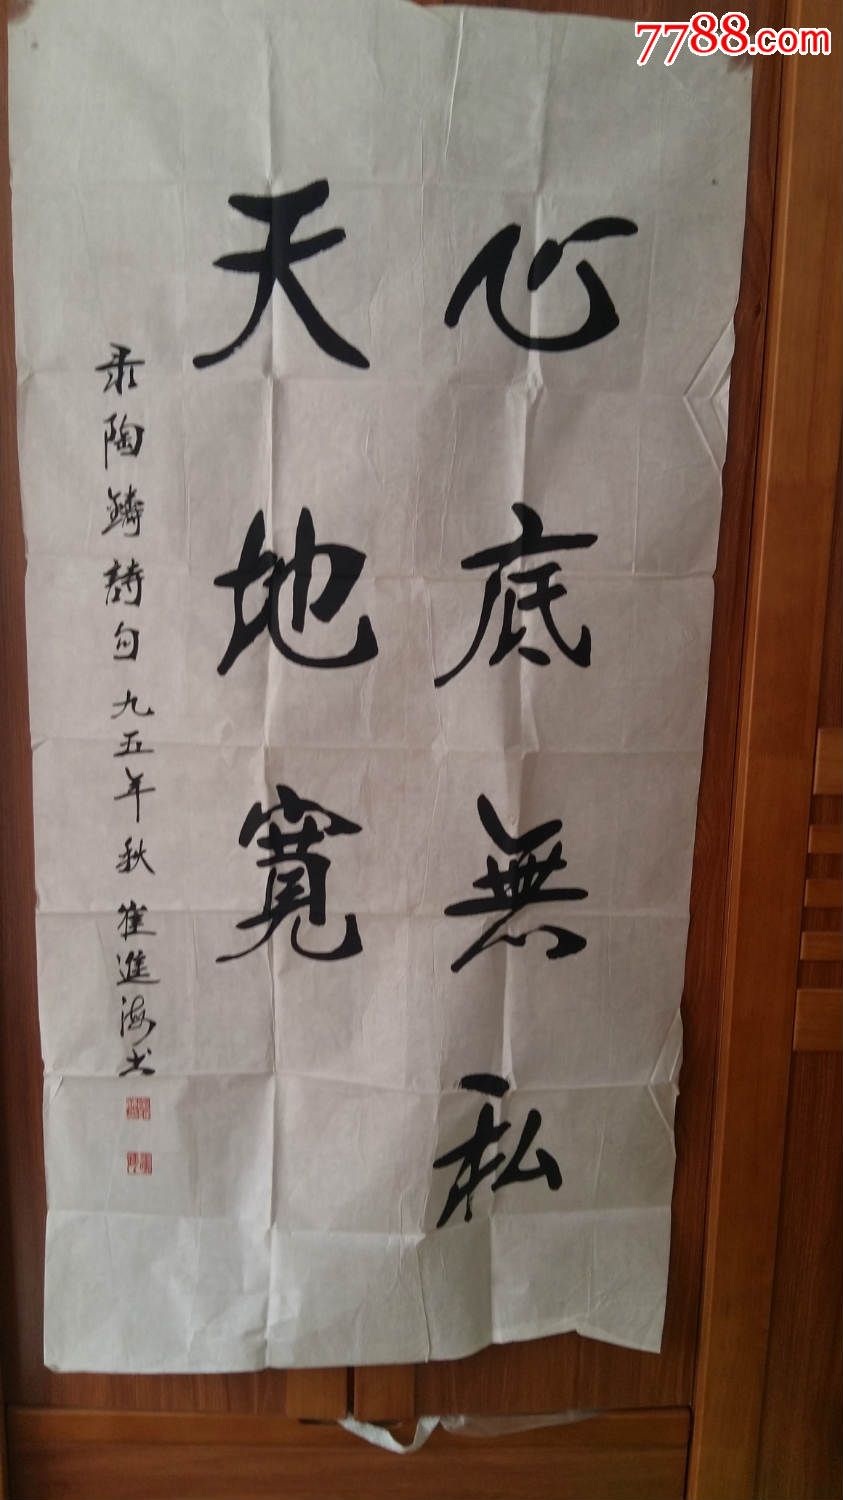 7788.com
心底無私
天地寬
录陶鑄詩句九五年秋崔進海书